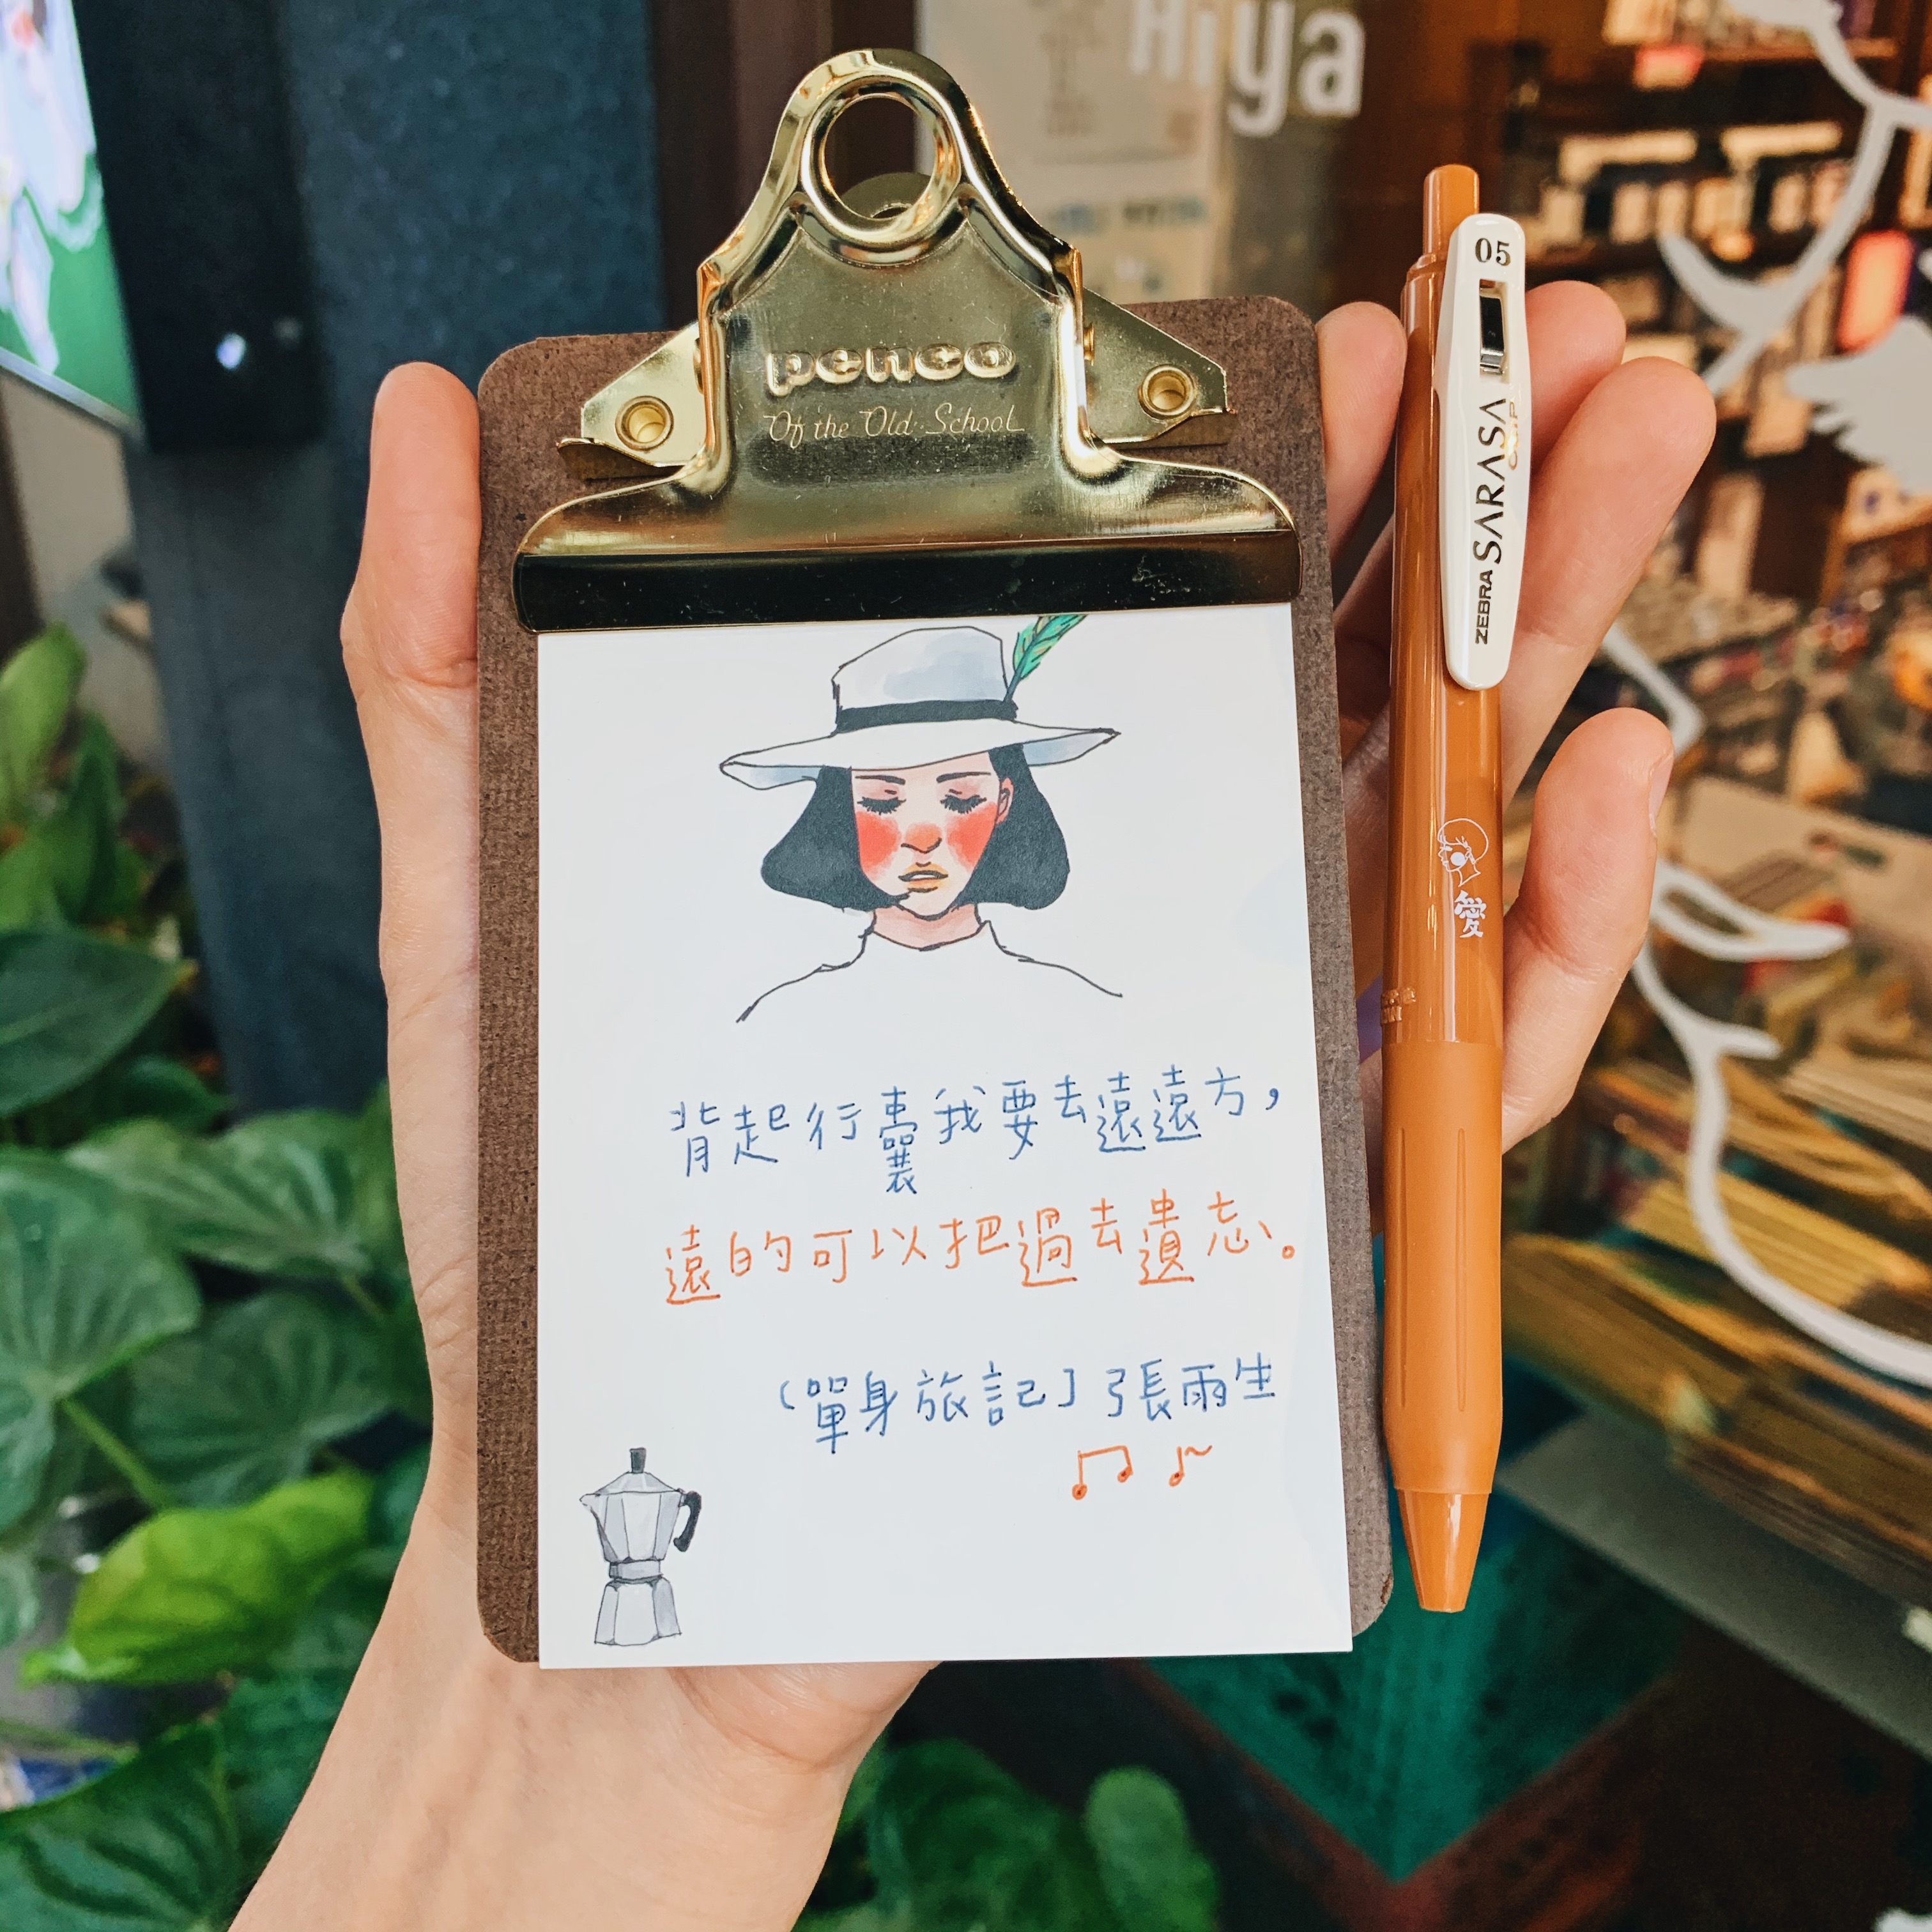 Hiya
penco
Of the Old School
05
ZEBRA SARASA CLIP
愛
背起行囊我要去遠遠方，
遠的可以把過去遺忘。
〔單身旅記〕張雨生